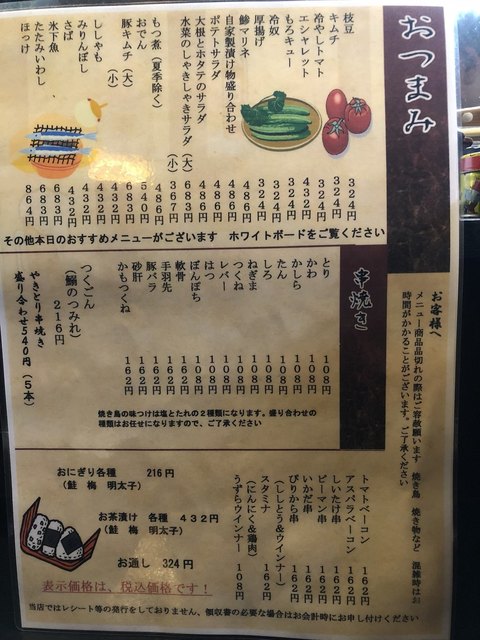 おつまみ
枝豆 324円
キムチ 324円
冷やしトマト 432円
エシャレット 324円
もろキュー 324円
冷奴 324円
厚揚げ 324円
鯵マリネ 486円
自家製漬け物盛り合わせ 486円
ポテトサラダ 486円
大根とホタテのサラダ 486円
水菜のしゃきしゃきサラダ (大) 683円
(小) 367円
もつ煮(夏季除く) 486円
おでん 540円
豚キムチ (大) 683円
(小) 432円
ししゃも 432円
みりんぼし 432円
さば 432円
氷下魚 683円
たたみいわし 683円
ほっけ 864円
その他本日のおすすめメニューがございます ホワイトボードをご覧ください
お客様へ
メニュー商品品切れの際はご容赦願います 焼き鳥 焼き物など 混雑時はお
時間がかかることがございます。ご了承ください
串焼き
とり 108円
かわ 108円
かしら 108円
たん 108円
しろ 108円
ねぎま 108円
つくね 108円
レバー 108円
はつ 108円
ぼんぼち 108円
軟骨 108円
手羽先 162円
豚バラ 162円
砂肝 162円
かもつくね 162円
つくごん
(鰯のつみれ) 216円
やきとり串焼き
盛り合わせ540円(5本)
焼き鳥の味つけは塩とたれの2種類になります。盛り合わせの
種類はお任せになりますので、ご了承ください
トマトベーコン 162円
アスパラベーコン 162円
しいたけ串 162円
ピーマン串 162円
いかだ串 162円
ぴりから串 162円
(ししとう&ウインナー)
スタミナ 162円
(にんにく&鶏肉)
うずらウインナー 108円
おにぎり各種 216円
(鮭 梅 明太子)
お茶漬け 各種 432円
(鮭 梅 明太子)
お通し 324円
表示価格は、税込価格です!
当店ではレシート等の発行をしておりません、領収書の必要な場合はお会計時にお申し付けください